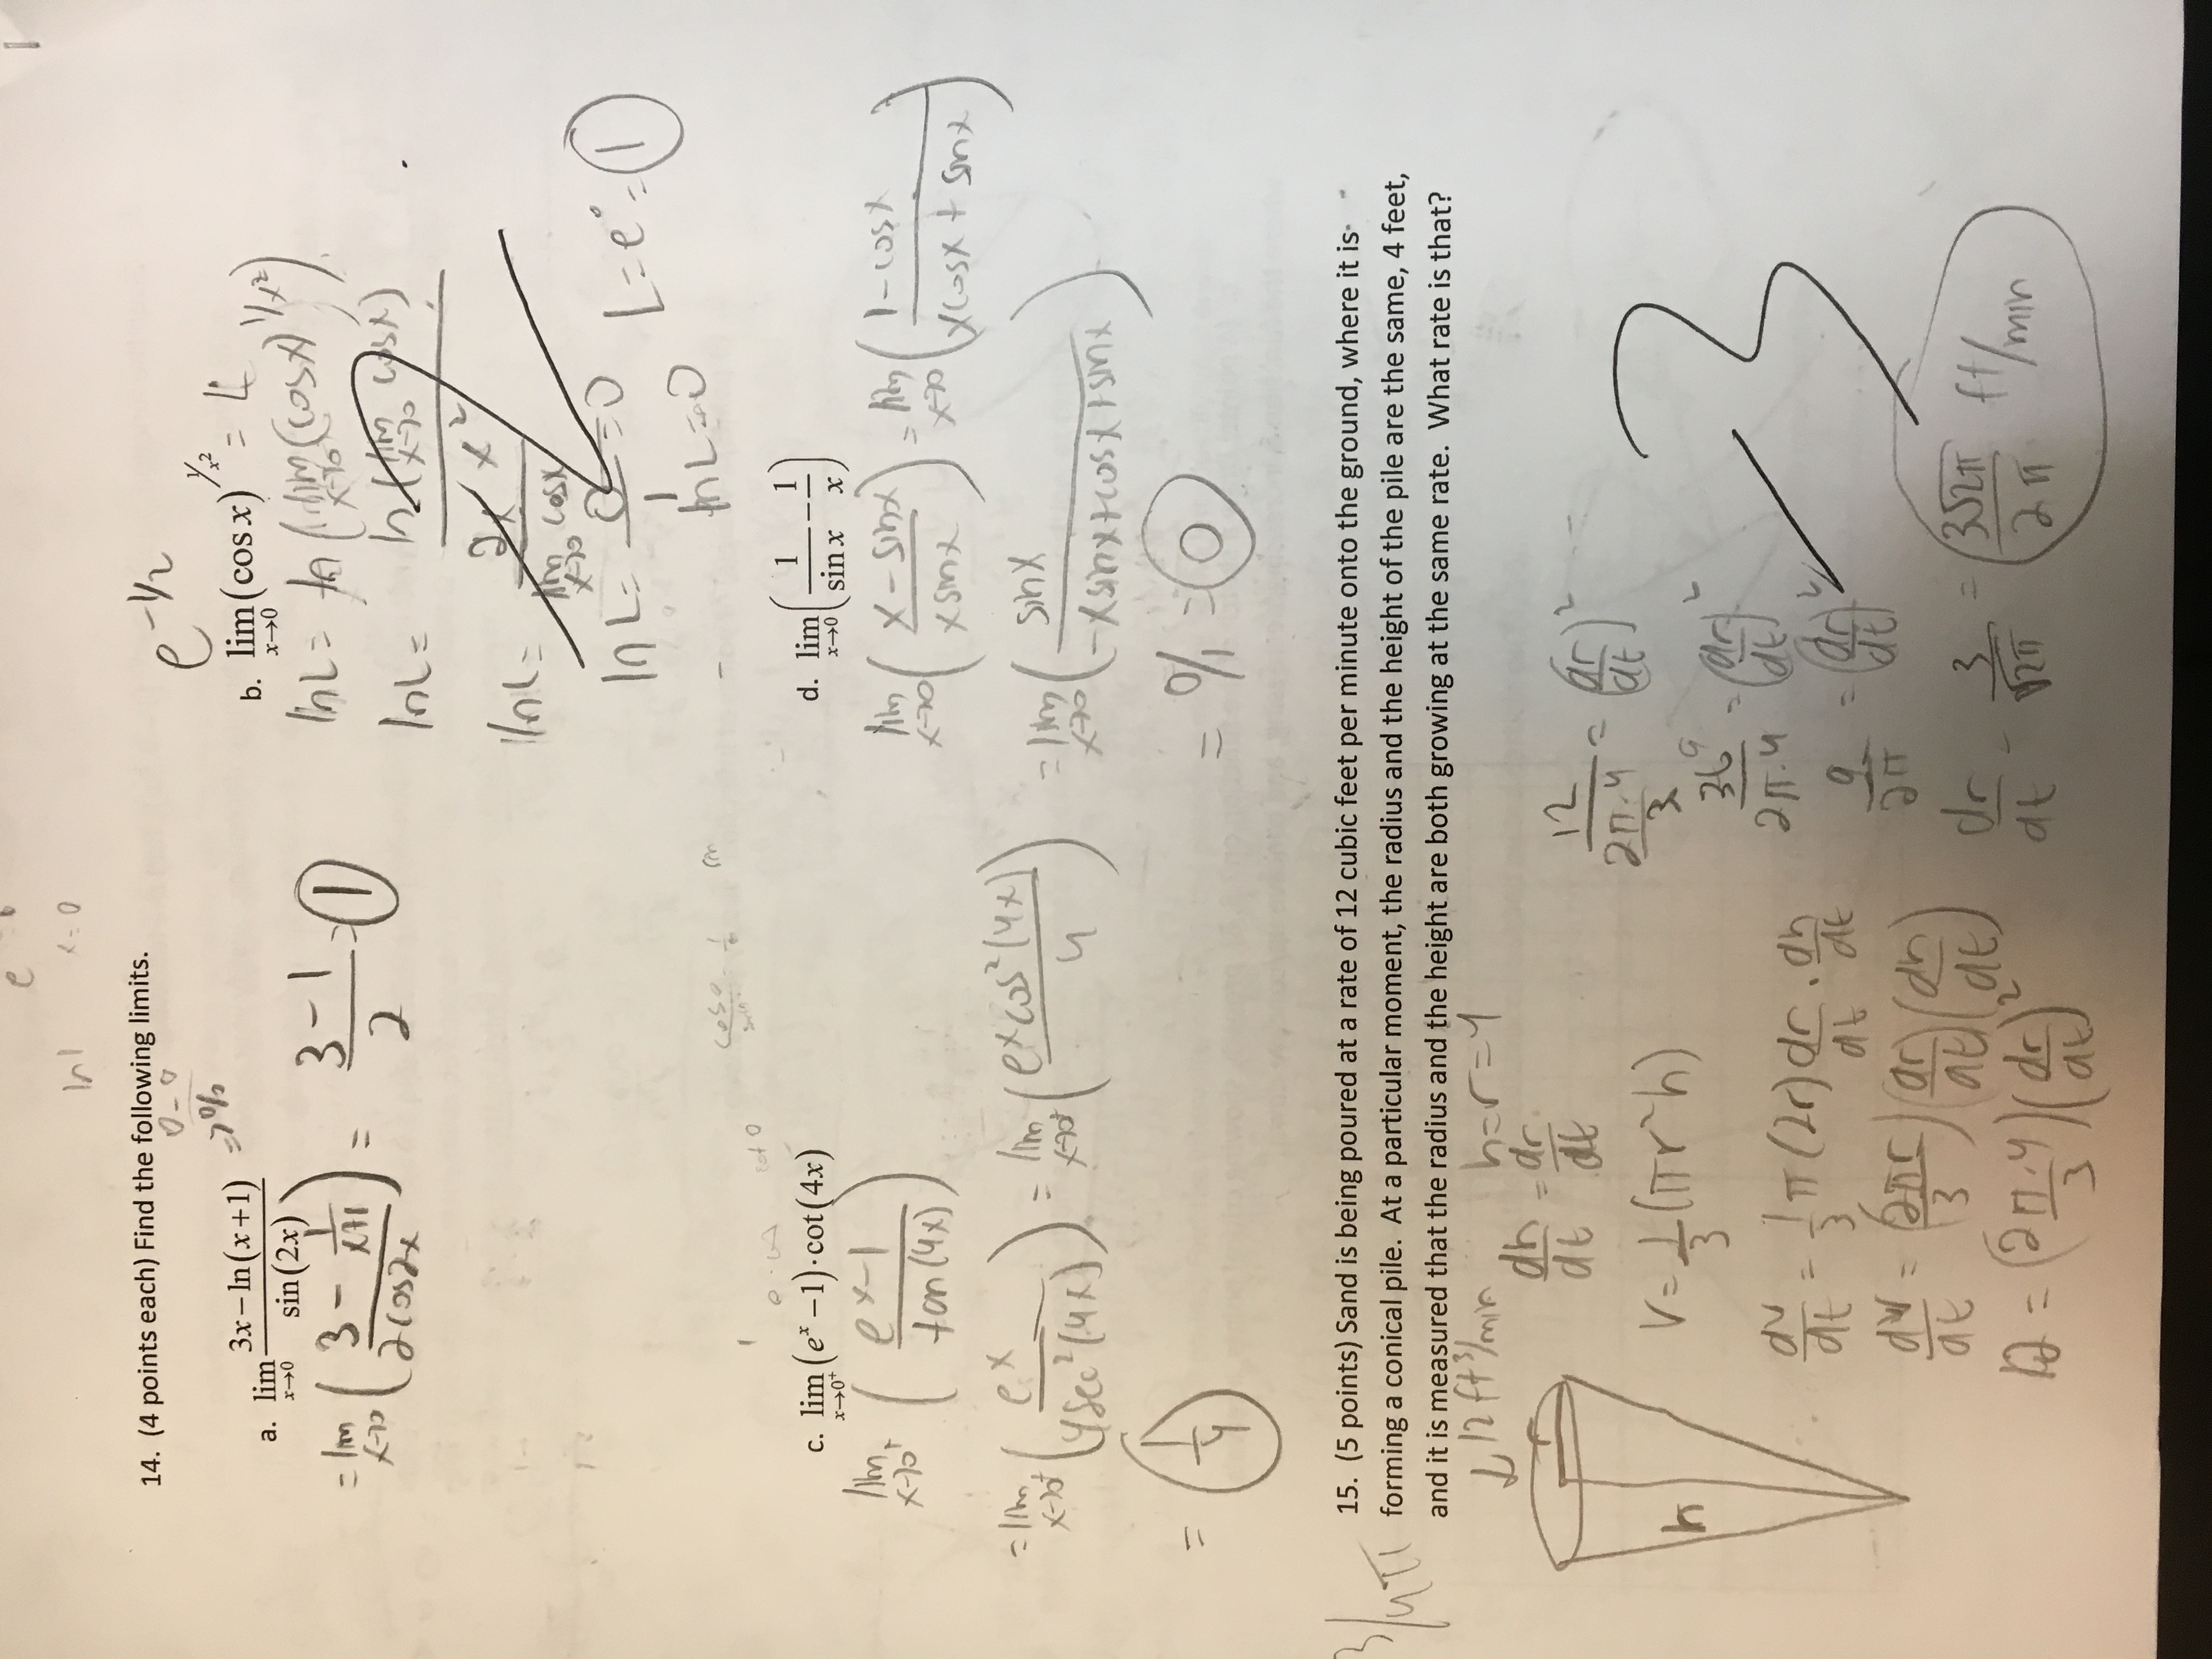 ln1 x=0
14. (4 points each) Find the following limits.
0-0
=> 0/0
a. lim x→0 3x−ln(x+1) / sin(2x)
= lim x→0 ( 3 - 1/(x+1) / 2cos2x ) = 3-1 / 2 = 1
e^-1/2
b. lim x→0 (cos x)^1/x² = L
lnL = ln ( lim x→0 (cosx)^1/x² )
lnL = ln ( lim x→0 cosx )
x²
lnL = 2x / lim x→0 cosx
ln L = 0/1 = 0 L = e⁰ = 1
lnL=0
2
cot 0
c. lim x→0⁺ (eˣ −1)·cot(4x)
lim x→0⁺ ( eˣ-1 / tan(4x) )
= lim x→0⁺ ( eˣ / 4sec²(4x) ) = lim x→0⁺ ( eˣcos²(4x) / 4 )
= 1/4
d. lim x→0 ( 1/sin x − 1/x )
lim x→0 ( x - sinx / xsinx ) = lim x→0 ( 1-cosx / xcosx + sinx )
= lim x→0 ( sinx / -xsinx+cosx+sinx )
= 0/1 = 0
3/4π
15. (5 points) Sand is being poured at a rate of 12 cubic feet per minute onto the ground, where it is
forming a conical pile. At a particular moment, the radius and the height of the pile are the same, 4 feet,
and it is measured that the radius and the height are both growing at the same rate. What rate is that?
12 ft³/min h=r=4
r
h
dh/dt = dr/dt
V = 1/3 (πr²h)
dv/dt = 1/3 π (2r) dr/dt · dh/dt
dV/dt = (2πr/3) (dr/dt) (dh/dt)
12 = (2π·4/3) (dr/dt)²
12 / (2π·4/3) = (dr/dt)²
36 9 / 2π·4 = (dr/dt)²
9/2π = (dr/dt)²
dr/dt = 3/√2π = 3√2π / 2π ft/min
3